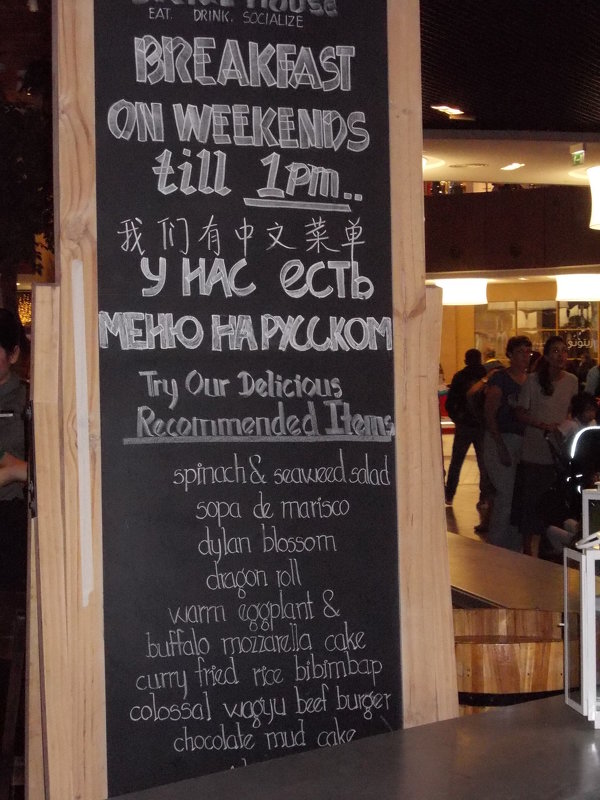 House
EAT. DRINK. SOCIALIZE
BREAKFAST
ON WEEKENDS
till 1pm..
我们有中文菜单
У НАС ЕСТЬ
МЕНЮ НА РУССКОМ
Try Our Delicious
Recommended Items
spinach & seaweed salad
sopa de marisco
dylan blossom
dragon roll
warm eggplant &
buffalo mozzarella cake
curry fried rice bibimbap
colossal wagyu beef burger
chocolate mud cake